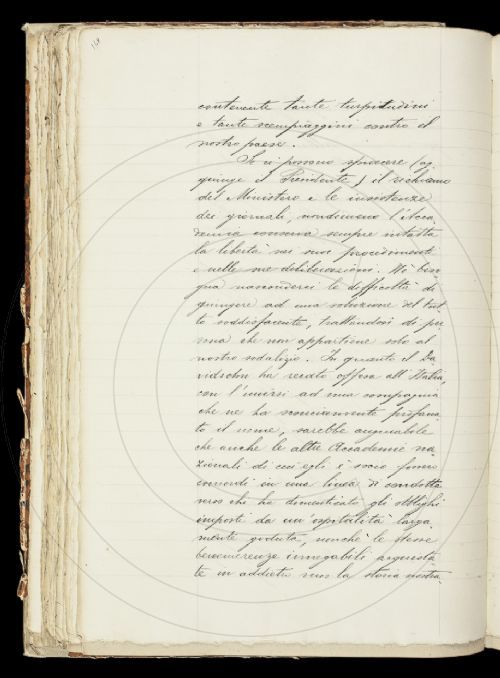 contenente tante turpitudini
e tante scempiaggini contro il
nostro paese.
Se ci possono spiacere (ag-
giunge il Presidente) il richiamo
del Ministero e le insistenze
dei giornali, nondimeno l'Acca-
demia conserva sempre intatta
la libertà nei suoi procedimenti
e nelle sue deliberazioni. Nè biso-
gna nascondersi le difficoltà di
giungere ad una soluzione del tut-
to soddisfacente, trattandosi di per-
sona che non appartiene solo al
nostro sodalizio. In quanto il Da-
vidsohn ha recato offesa all'Italia,
con l'unirsi ad una compagnia
che ne ha sconciamente profana-
to il nome, sarebbe augurabile
che anche le altre Accademie na-
zionali di cui egli è socio fossero
concordi in una linea di condotta
verso chi ha dimenticato gli obblighi
imposti da un'ospitalità larga-
mente goduta, nonchè le stesse
benemerenze innegabili acquista-
te in addietro verso la storia nostra.